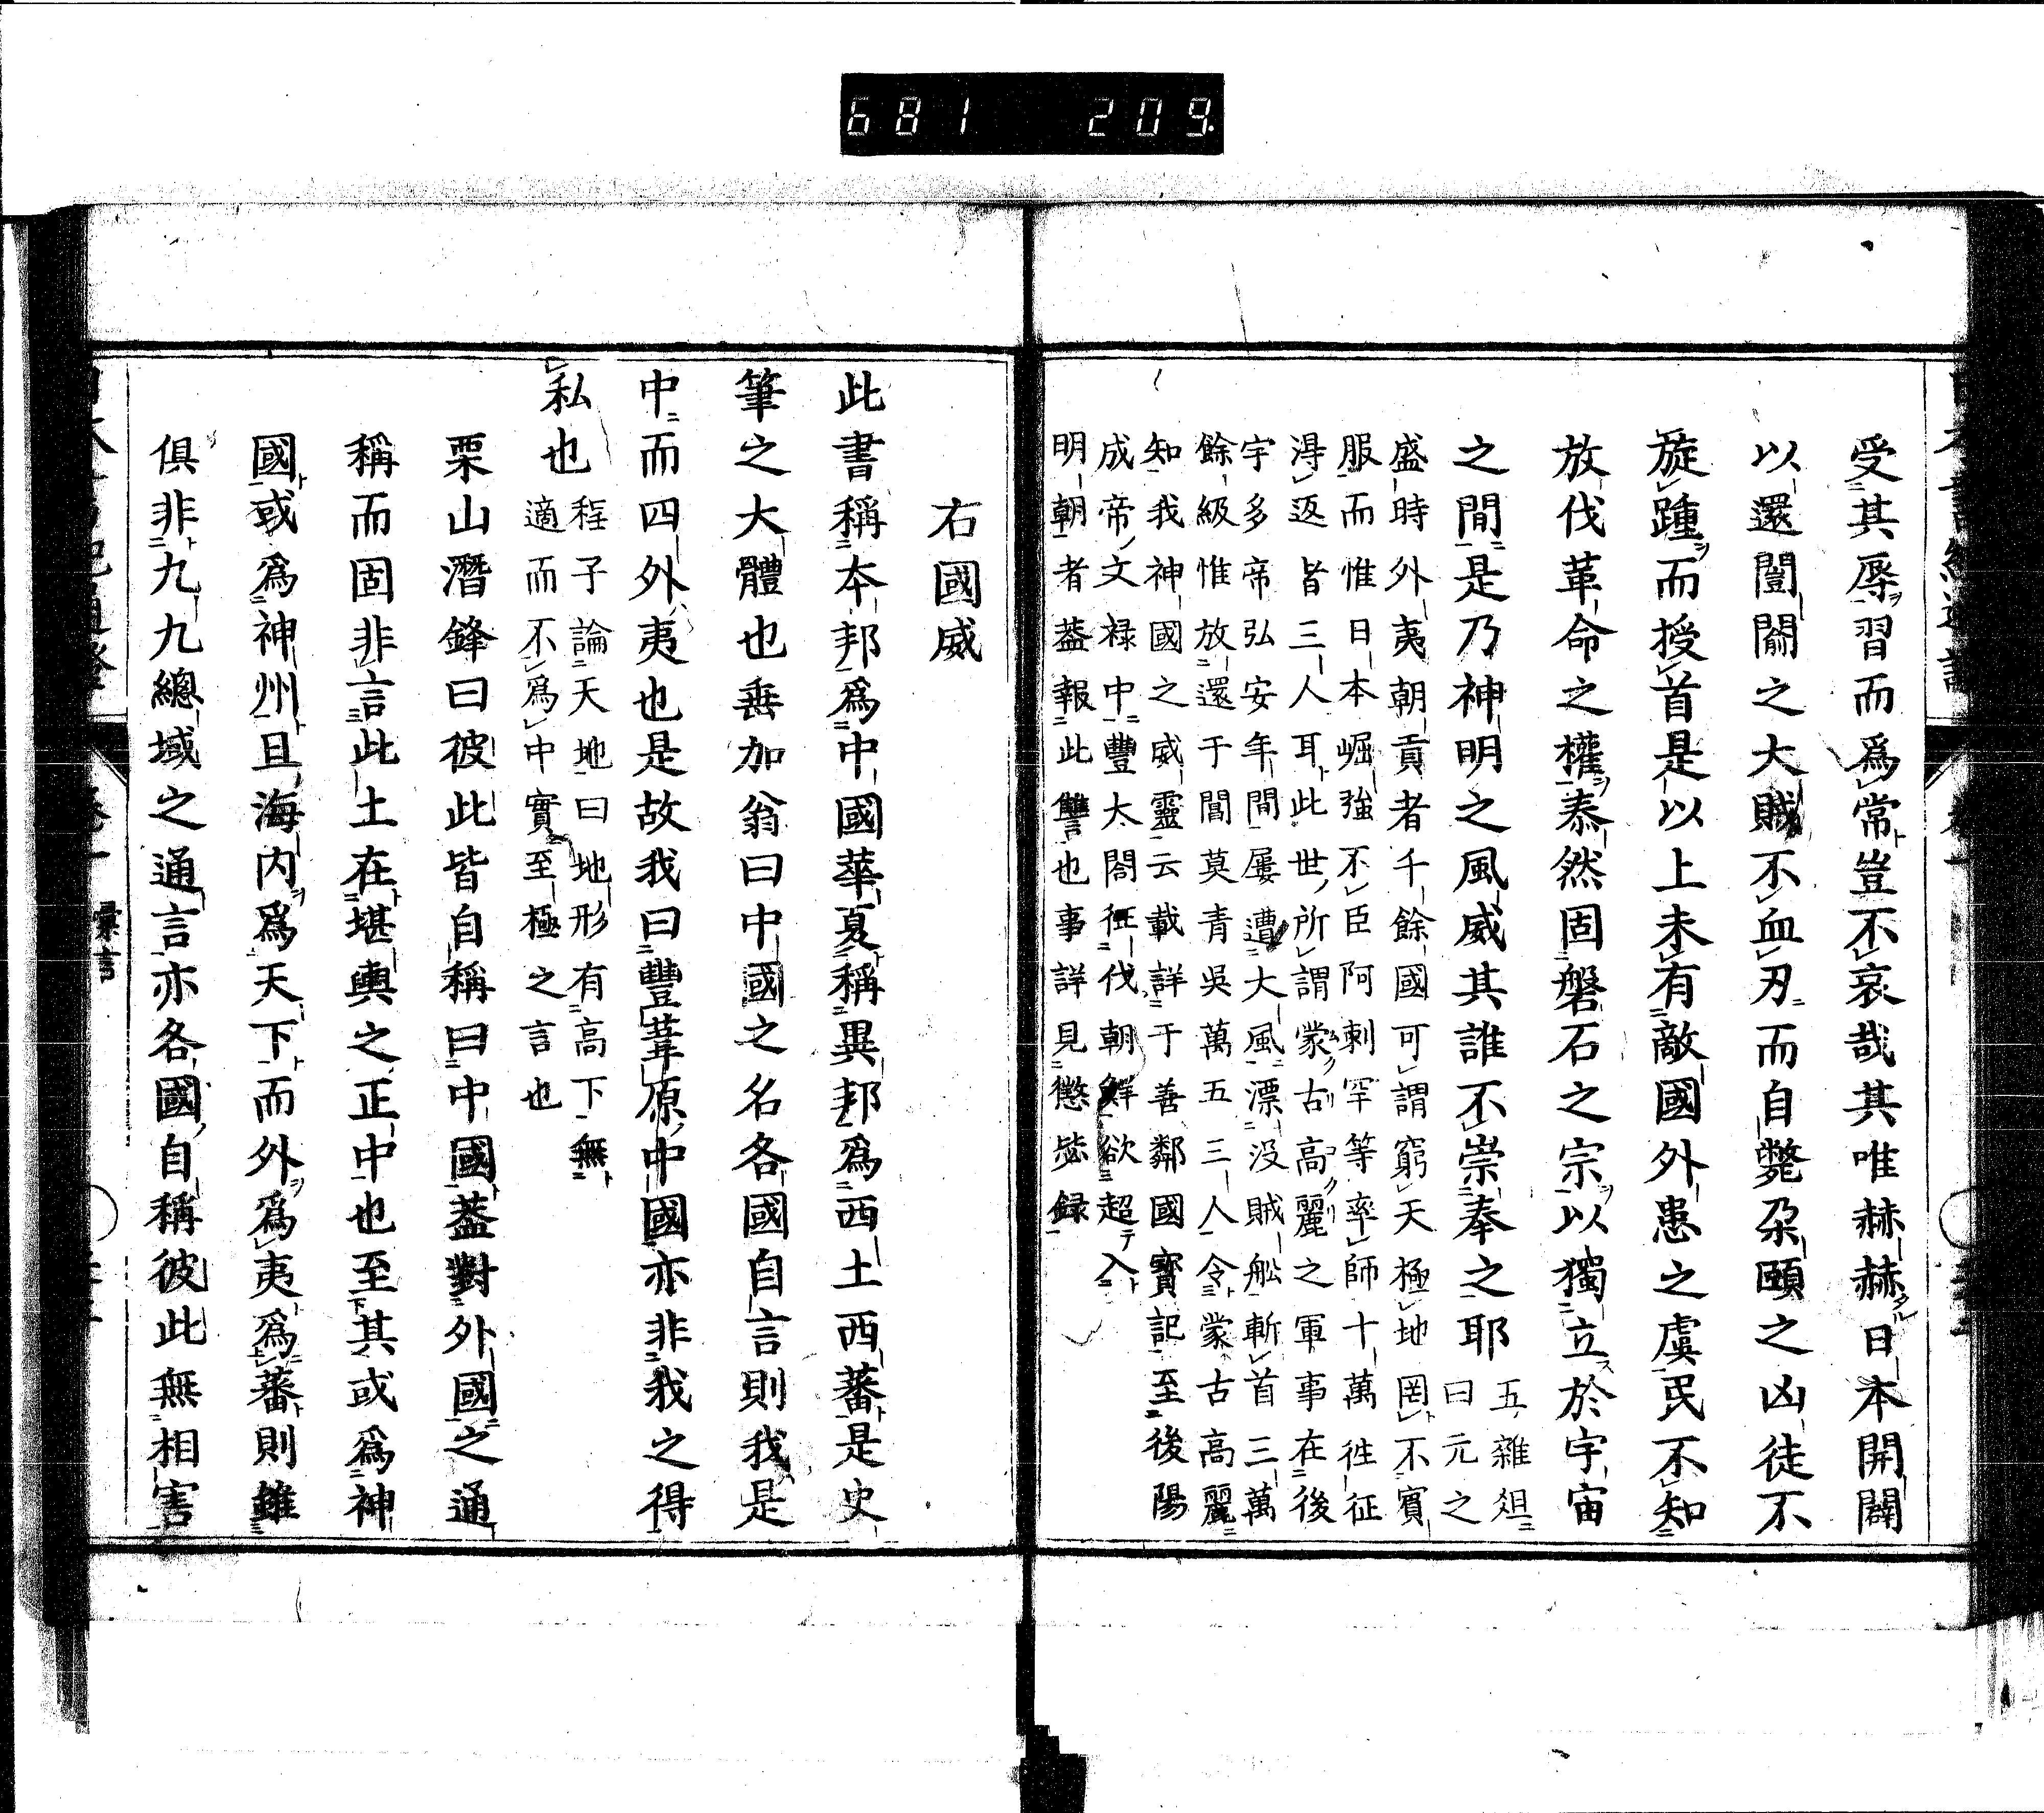 681 209.
受其辱習而為常豈不哀哉其唯赫赫日本開闢
以還闓闟之大賊不血刃而自斃朶頤之凶徒不
旋踵而授首是以上未有敵國外患之虞民不知
放伐革命之權泰然固磐石之宗以獨立於宇宙
之間是乃神明之風威其誰不崇奉之耶
五雜俎
曰元之
盛時外夷朝貢者千餘國可謂窮天極地罔不賓
服而惟日本崛強不臣阿剌罕等率師十萬徃征
淂返者三人耳此世所謂蒙古高麗之軍事在後
宇多帝弘安年間屢遭大風漂没賊舩斬首三萬
餘級惟放還于閭莫青吳萬五三人令蒙古高麗
知我神國之威靈云載詳于善鄰國寳記至後陽
成帝文禄中豐太閤征伐朝鮮欲超入
明朝者葢報此讐也事詳見懲毖録
右國威
此書稱本邦為中國華夏稱異邦為西土西蕃是史
筆之大體也垂加翁曰中國之名各國自言則我是
中而四外夷也是故我曰豐葦原中國亦非我之得
私也
程子論天地曰地形有高下無
適而不為中實至極之言也
栗山潛鋒曰彼此皆自稱曰中國葢對外國之通
稱而固非言此土在堪輿之正中也至其或為神
國或為神州且海内為天下而外為夷為蕃則雖
俱非九九總域之通言亦各國自稱彼此無相害
彙言